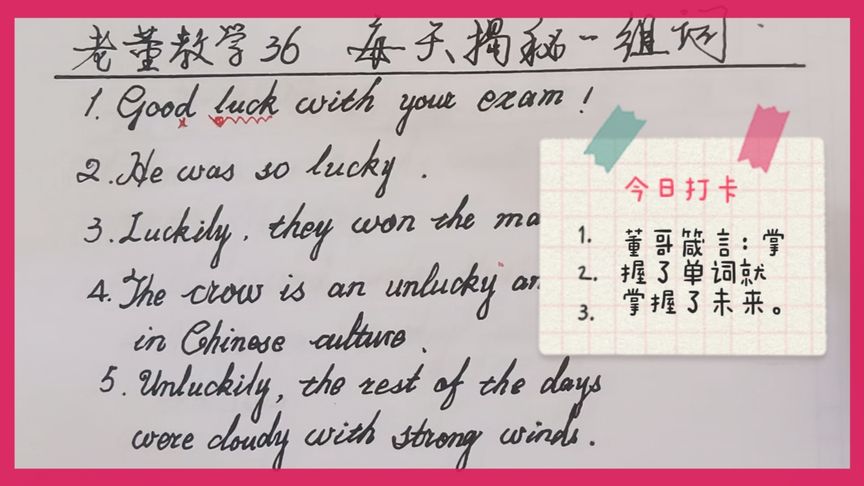 老董教学36 每天揭秘一组词
1. Good luck with your exam!
2. He was so lucky.
3. Luckily, they won the ma
4. The crow is an unlucky an
in Chinese culture.
5. Unluckily, the rest of the days
were cloudy with strong winds.
今日打卡
1. 董哥箴言:掌
2. 握了单词就
3. 掌握了未来。